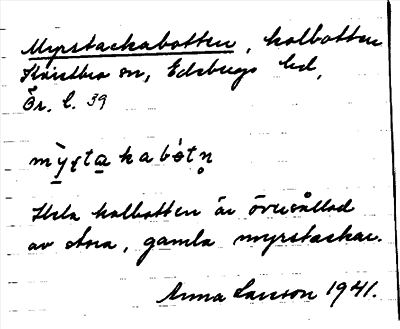 Myrstackabotten, kolbotten
Knistbro sn, Edsbergs hd,
Ör. l. 39
mỳʂtakabótn̥
Hela kolbotten är översållad
av stora, gamla myrstackar.
Anna Larsson 1941.